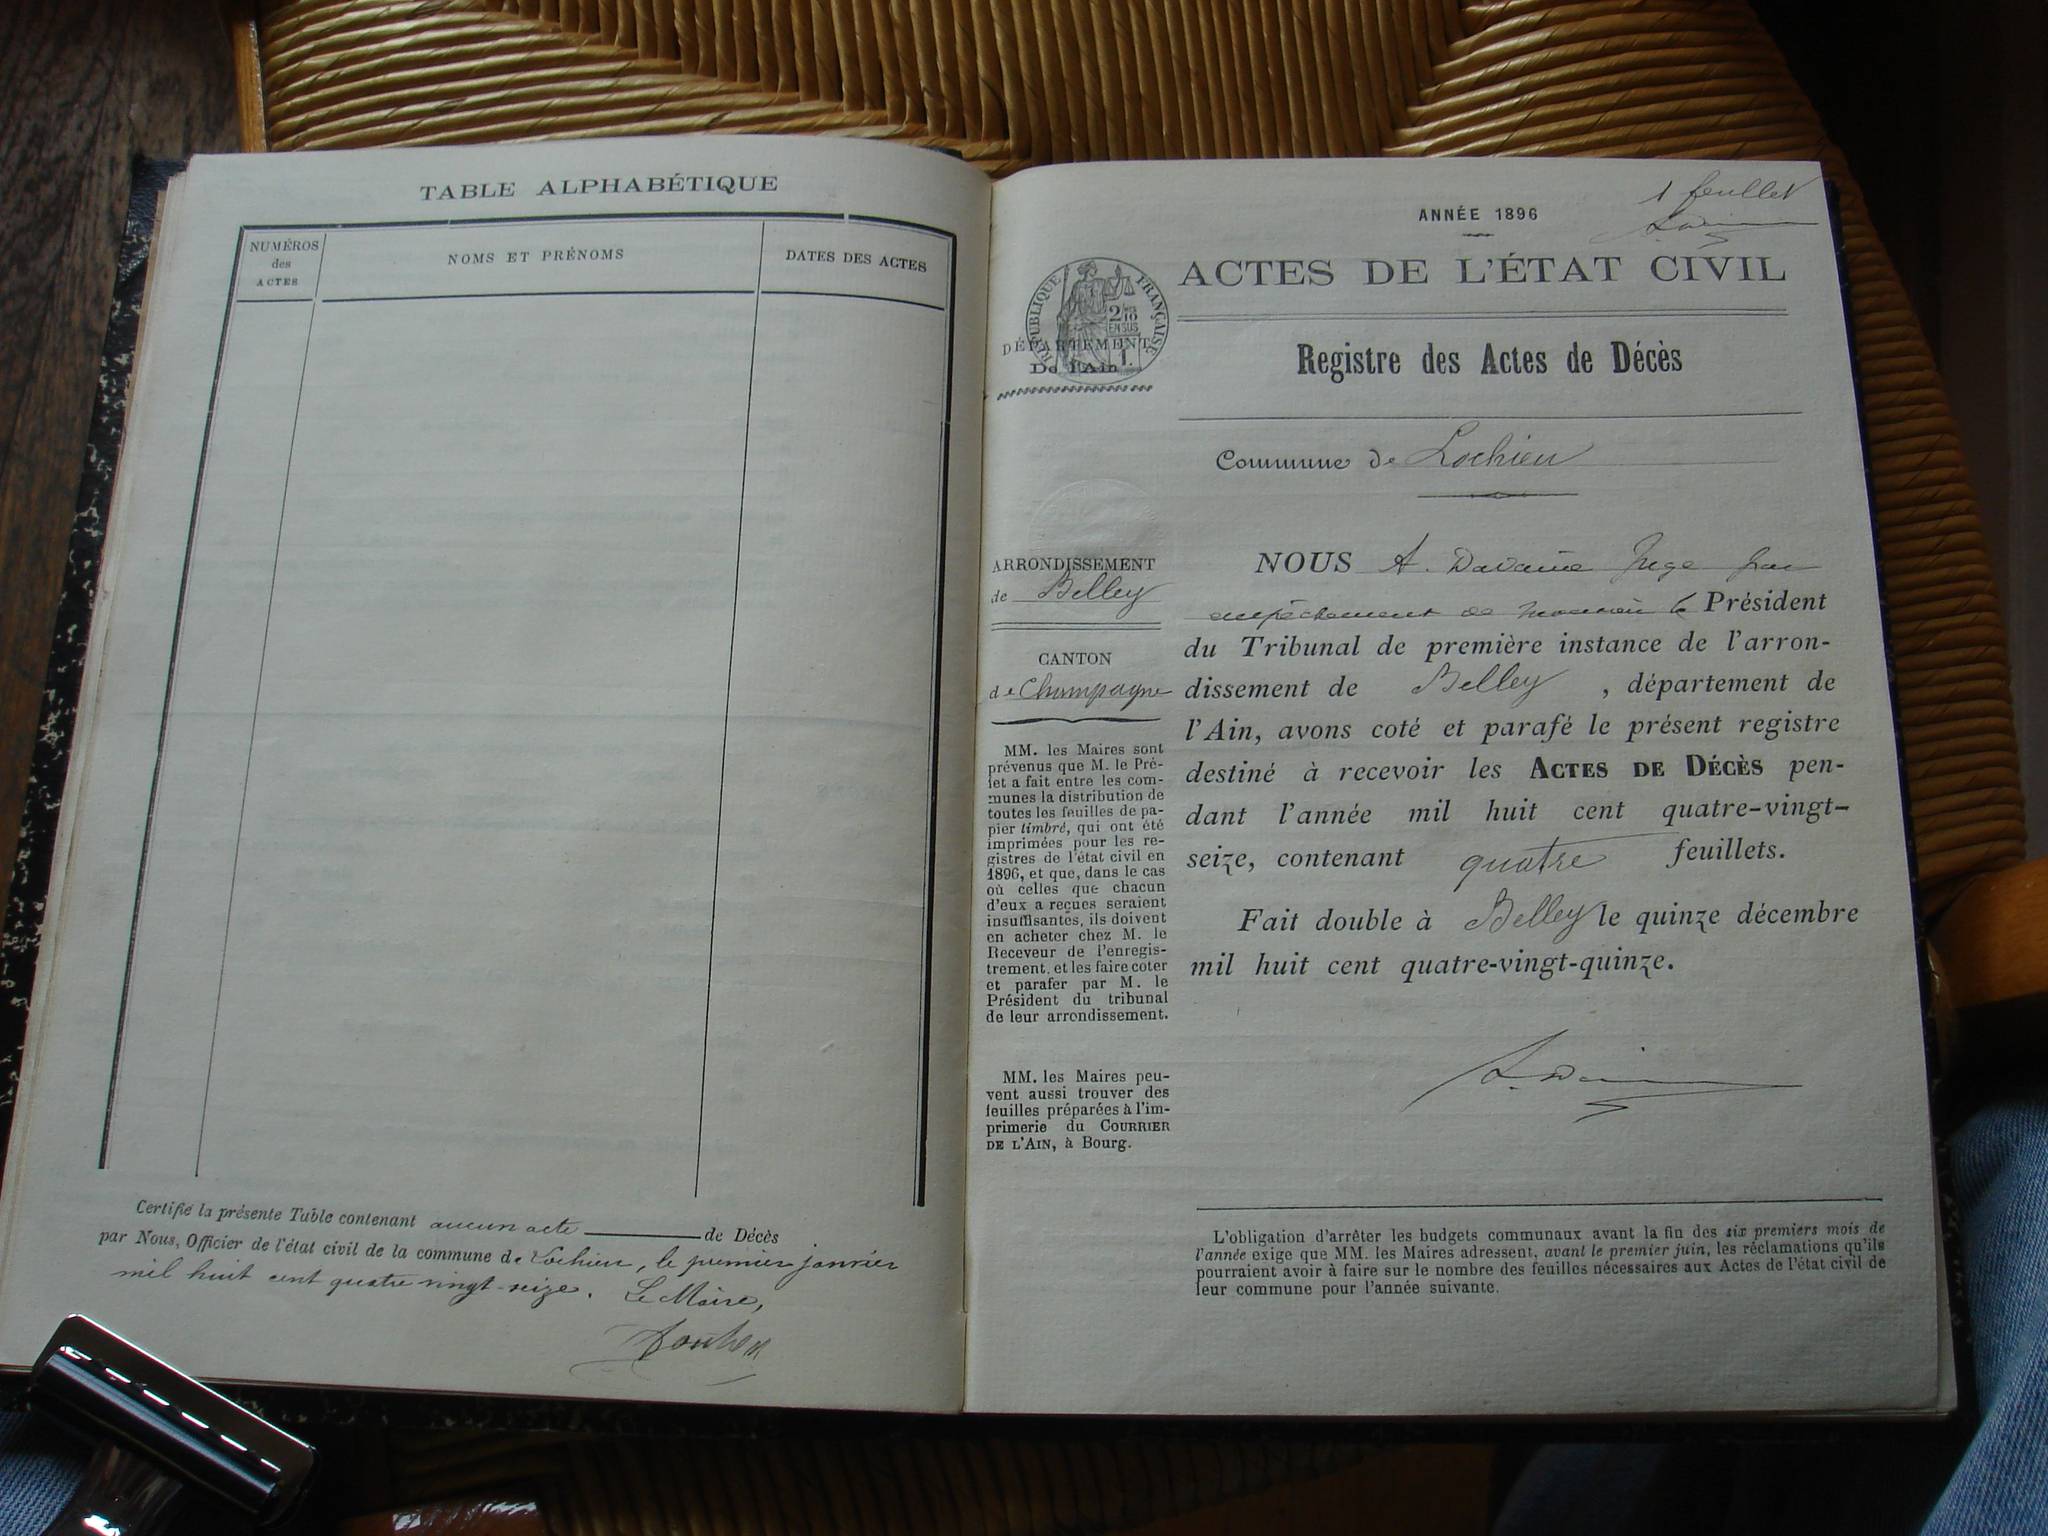 TABLE ALPHABÉTIQUE
NUMÉROS
des
ACTES
NOMS ET PRÉNOMS
DATES DES ACTES
Certifie la présente Table contenant aucun acte de Décès
par Nous, Officier de l'état civil de la commune de Lochieu, le premier janvier
mil huit cent quatre vingt-seize. Le Maire,
1 feuillet
ANNÉE 1896
ACTES DE L'ÉTAT CIVIL
RÉPUBLIQUE FRANÇAISE
2/10
EN SUS
DÉPARTEMENT
De l'Ain
Registre des Actes de Décès
Commune de Lochieu
ARRONDISSEMENT
de Belley
CANTON
de Champagne
MM. les Maires sont
prévenus que M. le Pré-
fet a fait entre les com-
munes la distribution de
toutes les feuilles de pa-
pier timbré, qui ont été
imprimées pour les re-
gistres de l'état civil en
1896, et que, dans le cas
où celles que chacun
d'eux a reçues seraient
insuffisantes, ils doivent
en acheter chez M. le
Receveur de l'enregis-
trement, et les faire coter
et parafer par M. le
Président du tribunal
de leur arrondissement.
MM. les Maires peu-
vent aussi trouver des
feuilles préparées à l'im-
primerie du COURRIER
DE L'AIN, à Bourg.
NOUS A. Davaine Juge par
empêchement de monsieur le Président
du Tribunal de première instance de l'arron-
dissement de Belley, département de
l'Ain, avons coté et parafé le présent registre
destiné à recevoir les ACTES DE DÉCÈS pen-
dant l'année mil huit cent quatre-vingt-
seize, contenant quatre feuillets.
Fait double à Belley le quinze décembre
mil huit cent quatre-vingt-quinze.
L'obligation d'arrêter les budgets communaux avant la fin des six premiers mois de
l'année exige que MM. les Maires adressent, avant le premier juin, les réclamations qu'ils
pourraient avoir à faire sur le nombre des feuilles nécessaires aux Actes de l'état civil de
leur commune pour l'année suivante.